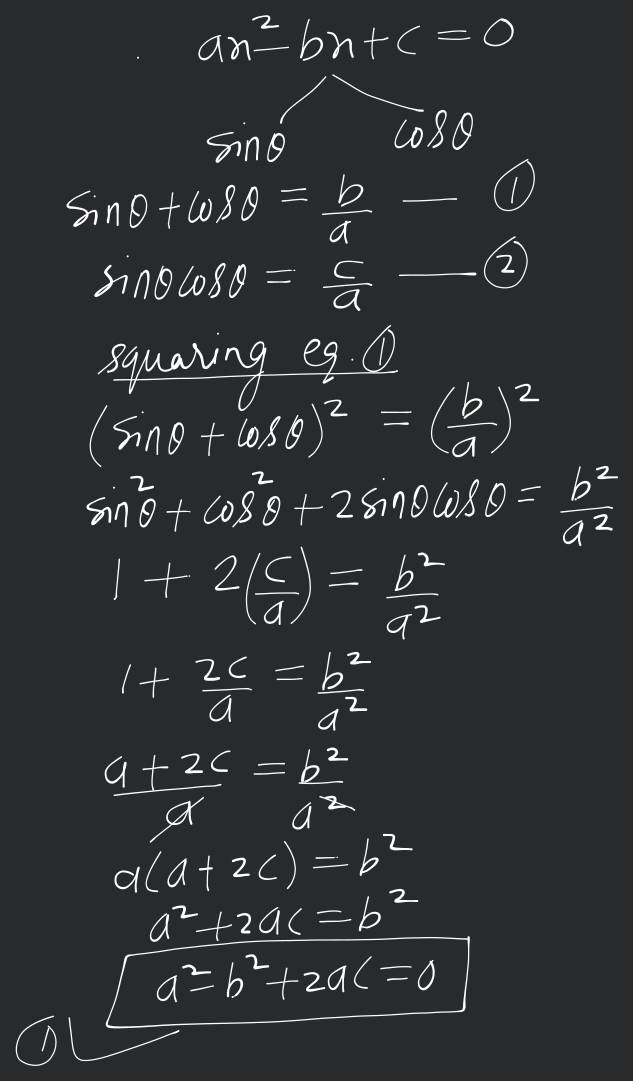 ax² - bx + c = 0
sinθ cosθ
sinθ + cosθ = b/a — ①
sinθcosθ = c/a — ②
squaring eq. ①
(sinθ + cosθ)² = (b/a)²
sin²θ + cos²θ + 2sinθcosθ = b²/a²
1 + 2(c/a) = b²/a²
1 + 2c/a = b²/a²
a + 2c/a = b²/a²
a(a + 2c) = b²
a² + 2ac = b²
a² - b² + 2ac = 0
①